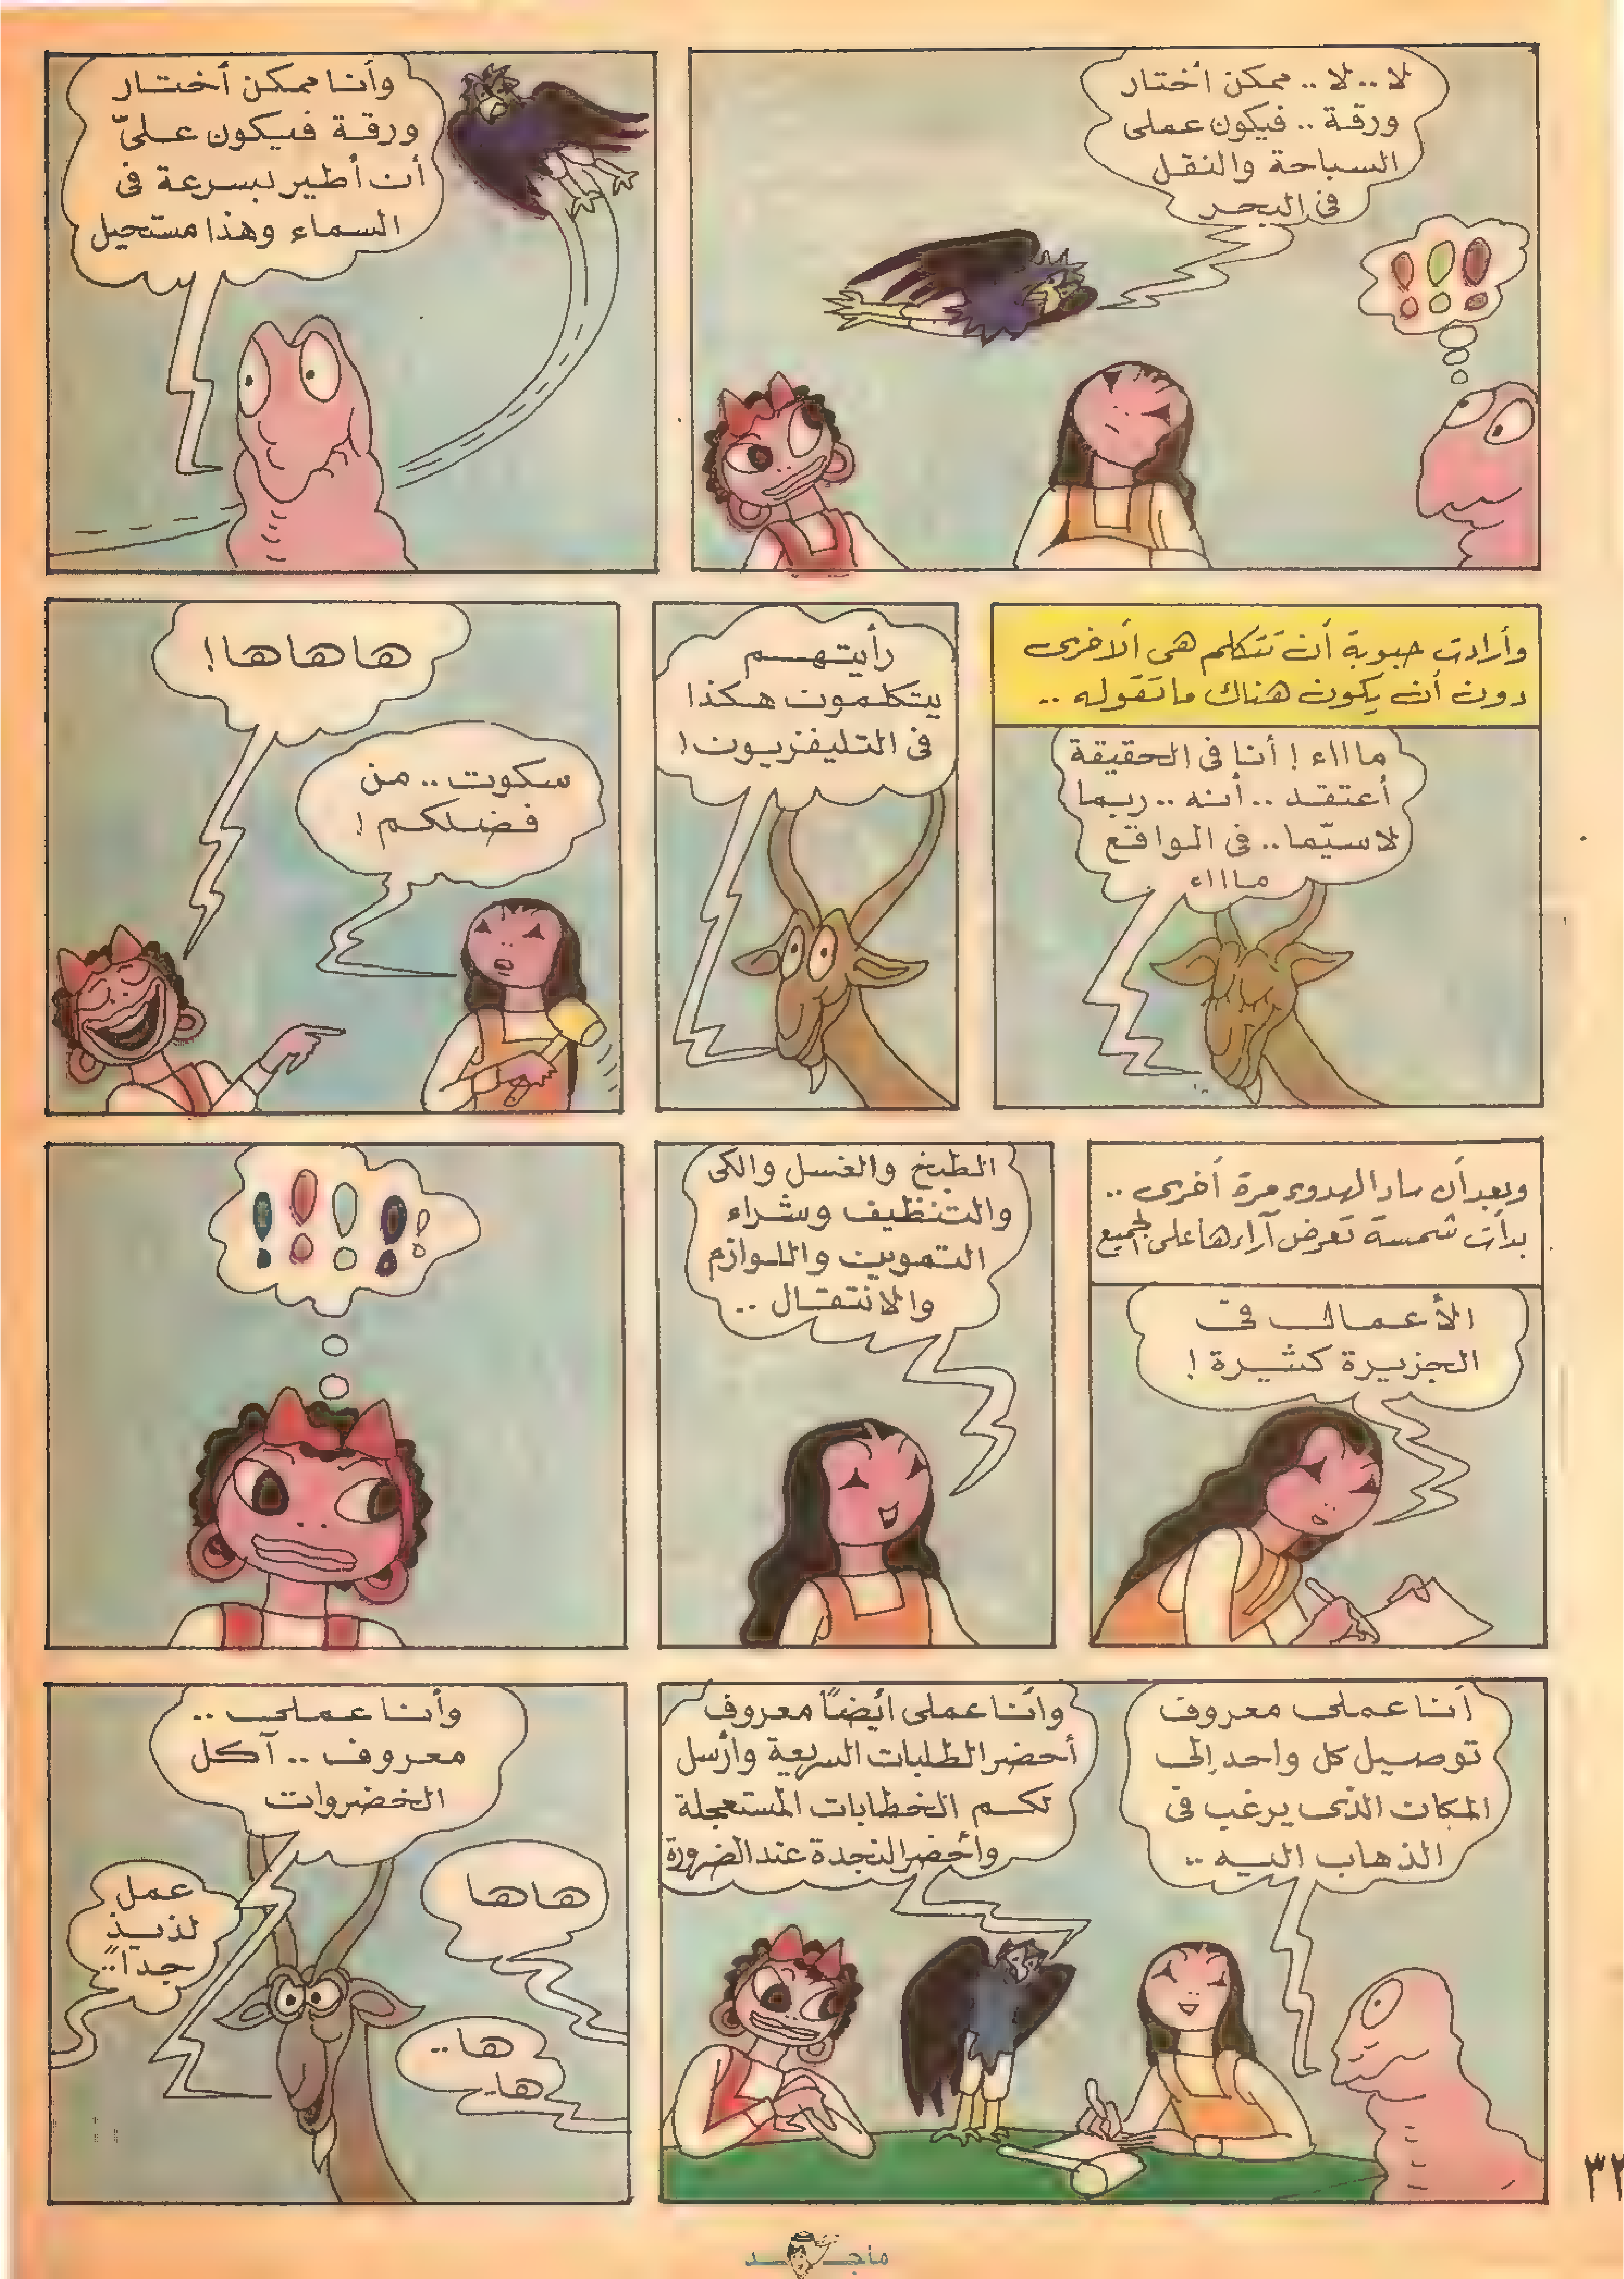 لا..لا.. ممكن أختار
ورقة.. فيكون عملى
السباحة والنقل
فى البحر
وأنا ممكن أختار
ورقة فيكون علىّ
أن أطير بسرعة فى
السماء وهذا مستحيل
وأرادت حبوبة أن تتكلم هى الأخرى
دون أن يكون هناك ما تقوله ..
ماااء ! أنا فى الحقيقة
أعتقد .. أنه .. ربما
لاسيّما .. فى الواقع
ماااء
رأيتهم
يتكلمون هكذا
فى التليفزيون !
هاهاها !
سكوت .. من
فضلكم !
وبعد أن ساد الهدوء مرة أخرى ..
بدأت شمسة تعرض آراءها على الجميع
الأعمال فى
الجزيرة كثيرة !
الطبخ والغسل والكى
والتنظيف وشراء
التموين واللوازم
والانتقال ..
أنا عملى معروف
توصيل كل واحد إلى
المكان الذى يرغب فى
الذهاب اليه ..
وأنا عملى أيضاً معروف
أحضر الطلبات السريعة وأرسل
لكم الخطابات المستعجلة
وأحضر النجدة عند الضرورة
وأنا عملى ..
معروف .. آكل
الخضروات
هاها
ها ..
ها ..
عمل
لذيذ
جداً ..
٣٢
ماجد